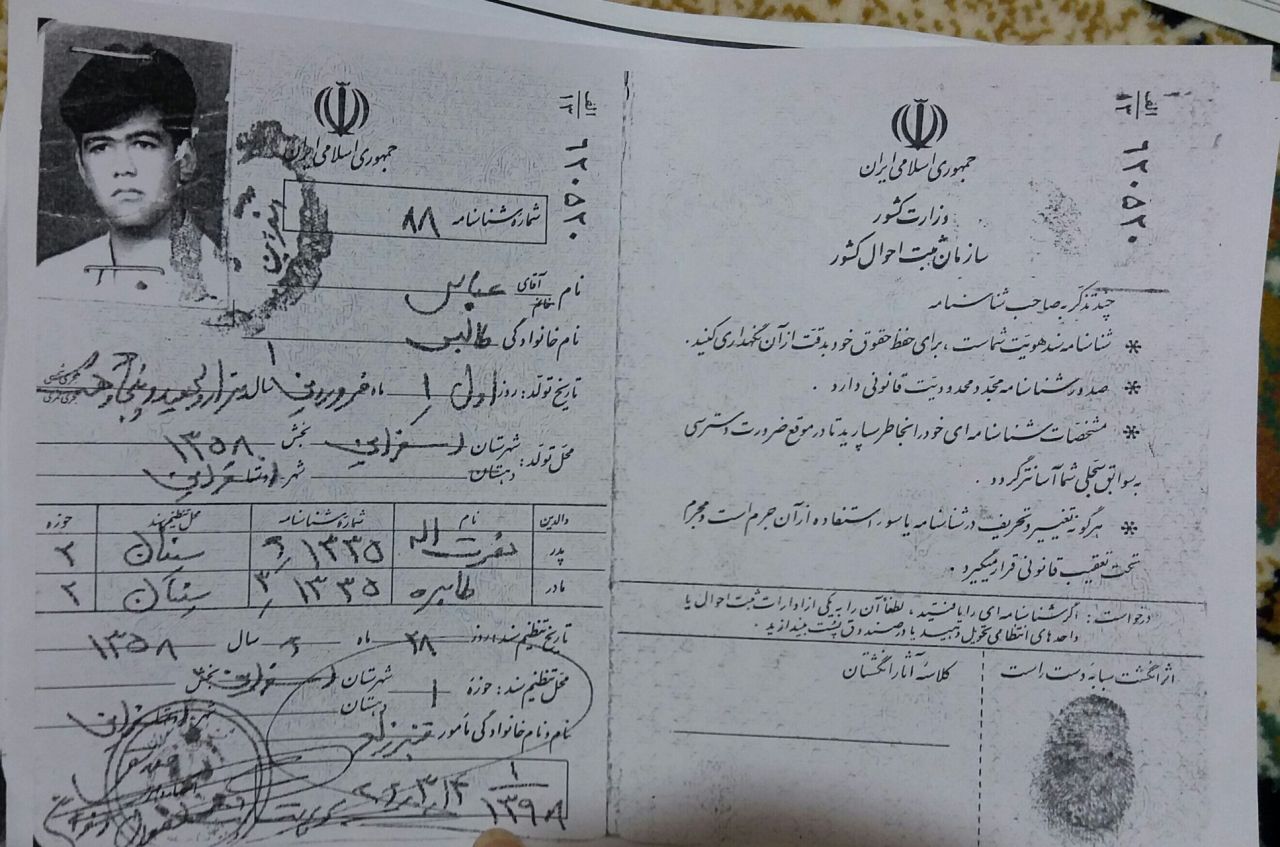 الف
۱۳
۶۲۰۵۲۰
جمهوری اسلامی ایران
وزارت کشور
سازمان ثبت احوال کشور
چند تذکر به صاحب شناسنامه
* شناسنامه سند هویت شماست ، برای حفظ حقوق خود بدقت از آن نگهداری کنید .
* صدور شناسنامه مجدد محدودیت قانونی دارد .
* مشخصات شناسنامه ای خود را بخاطر بسپارید تا در موقع ضرورت دسترسی
به سوابق سجلی شما آسانتر گردد .
* هرگونه تغییر و تحریف در شناسنامه یا سوء استفاده از آن جرم است و مجرم
تحت تعقیب قانونی قرار میگیرد .
درخواست : اگر شناسنامه ای را یافتید ، لطفاً آن را به یکی از ادارات ثبت احوال یا
واحدهای انتظامی تحویل دهید یا در صندوق پست بیندازید .
اثر انگشت سبابه دست راست
کلاسه آثار انگشتان
الف
۱۳
۶۲۰۵۲۰
جمهوری اسلامی ایران
شماره شناسنامه ۸۸
نام آقای خانم عباس
نام خانوادگی طالبی
تاریخ تولد : روز اول ۱ ماه فروردین ۱ سال هزار و سیصد و پنجاه و هشت
محل تولد : شهرستان اسفراین بخش ۱۳۵۸
دهستان شهر اسفراین
والدین نام شماره شناسنامه محل تنظیم سند حوزه
پدر نصرت اله ۱۳۳۵ ۲
مادر طاهره ۱۳۳۵ ۲
تاریخ تنظیم سند : روز ۲۸ ماه ۶ سال ۱۳۵۸
محل تنظیم سند : حوزه ۱ شهرستان اسفراین بخش
دهستان شهر اسفراین
نام و نام خانوادگی مأمور